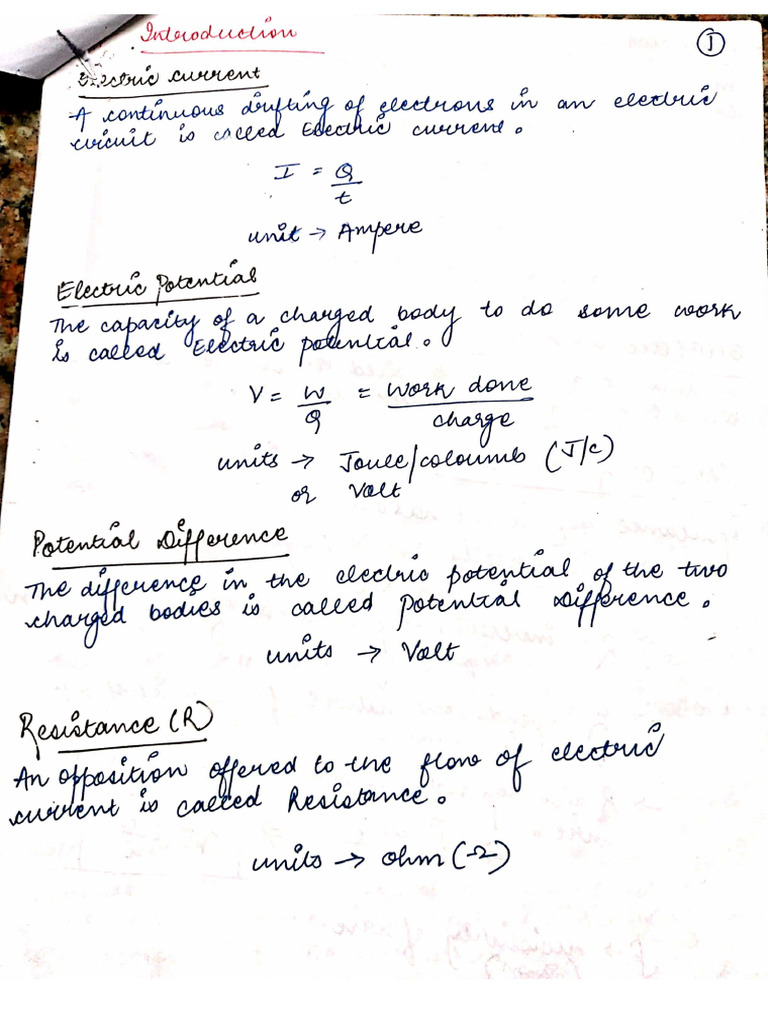 Introduction
1
Electric current
A continuous drifting of electrons in an electric
circuit is called Electric current.
I = Q
t
unit → Ampere
Electric Potential
The capacity of a charged body to do some work
is called Electric potential.
V = W/Q = Work done/charge
units → Joule/coloumb (J/C)
or Volt
Potential Difference
The difference in the electric potential of the two
charged bodies is called Potential Difference.
units → Volt
Resistance (R)
An opposition offered to the flow of electric
current is called Resistance.
units → ohm (Ω)